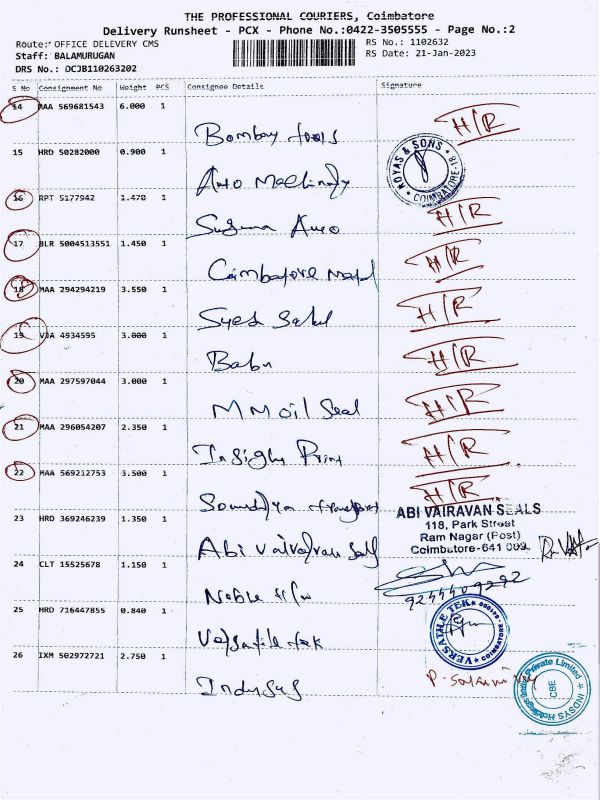 THE PROFESSIONAL COURIERS, Coimbatore
Delivery Runsheet - PCX - Phone No.:0422-3505555 - Page No.:2
Route: OFFICE DELEVERY CMS
RS No.: 1102632
Staff: BALAMURUGAN
RS Date: 21-Jan-2023
DRS No.: DCJB110263202
S No Consignment No Weight PCS Consignee Details Signature
14 MAA 569681543 6.000 1
Bombay tools H/R
15 HRD 50282000 0.900 1
Auto Machinary
ROYAS & SONS * COIMBATORE-18 *
16 RPT 5177942 1.470 1
Suguna Auto H/R
17 BLR 5004513551 1.450 1
Coimbatore Metal H/R
18 MAA 294294219 3.550 1
Syed H/R
19 4934595 3.000 1
Babu H/R
20 MAA 297597044 3.000 1
MM oil Seal H/R
21 MAA 296054207 2.350 1
Insight Print H/R
22 MAA 569212753 3.500 1
Soundarya transport H/R
23 HRD 369246239 1.350 1
Abi Vairavan Seals
ABI VAIRAVAN SEALS
118, Park Street
Ram Nagar (Post)
Coimbatore-641 009.
24 CLT 15525678 1.150 1
Noble H/w
25 HRD 716447855 0.840 1
Versatile tek
VERSATILE TEK * COIMBATORE
26 IXM 502972721 2.750 1
Indusys
INDSYS Holdings India Private Limited
CBE